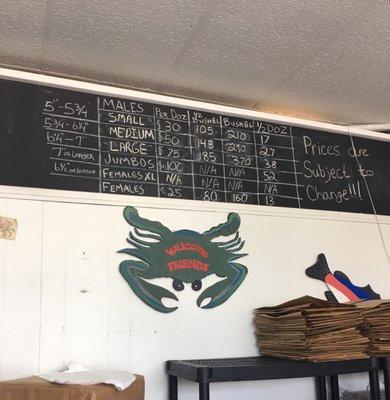 MALES PER DOZ ½ BUSHEL BUSHEL ½ DOZ
5"-5¾" SMALL $30 105 210 17
5¾-6¼" MEDIUM $50 148 290 27
6¼-7" LARGE $75 185 370 38
7" OR LARGER JUMBOS $100 N/A N/A 52
6½" OR LARGER FEMALES XL N/A N/A N/A
FEMALES $25 80 160 13
Prices are
Subject to
Change!!!
WELCOME
FRIENDS